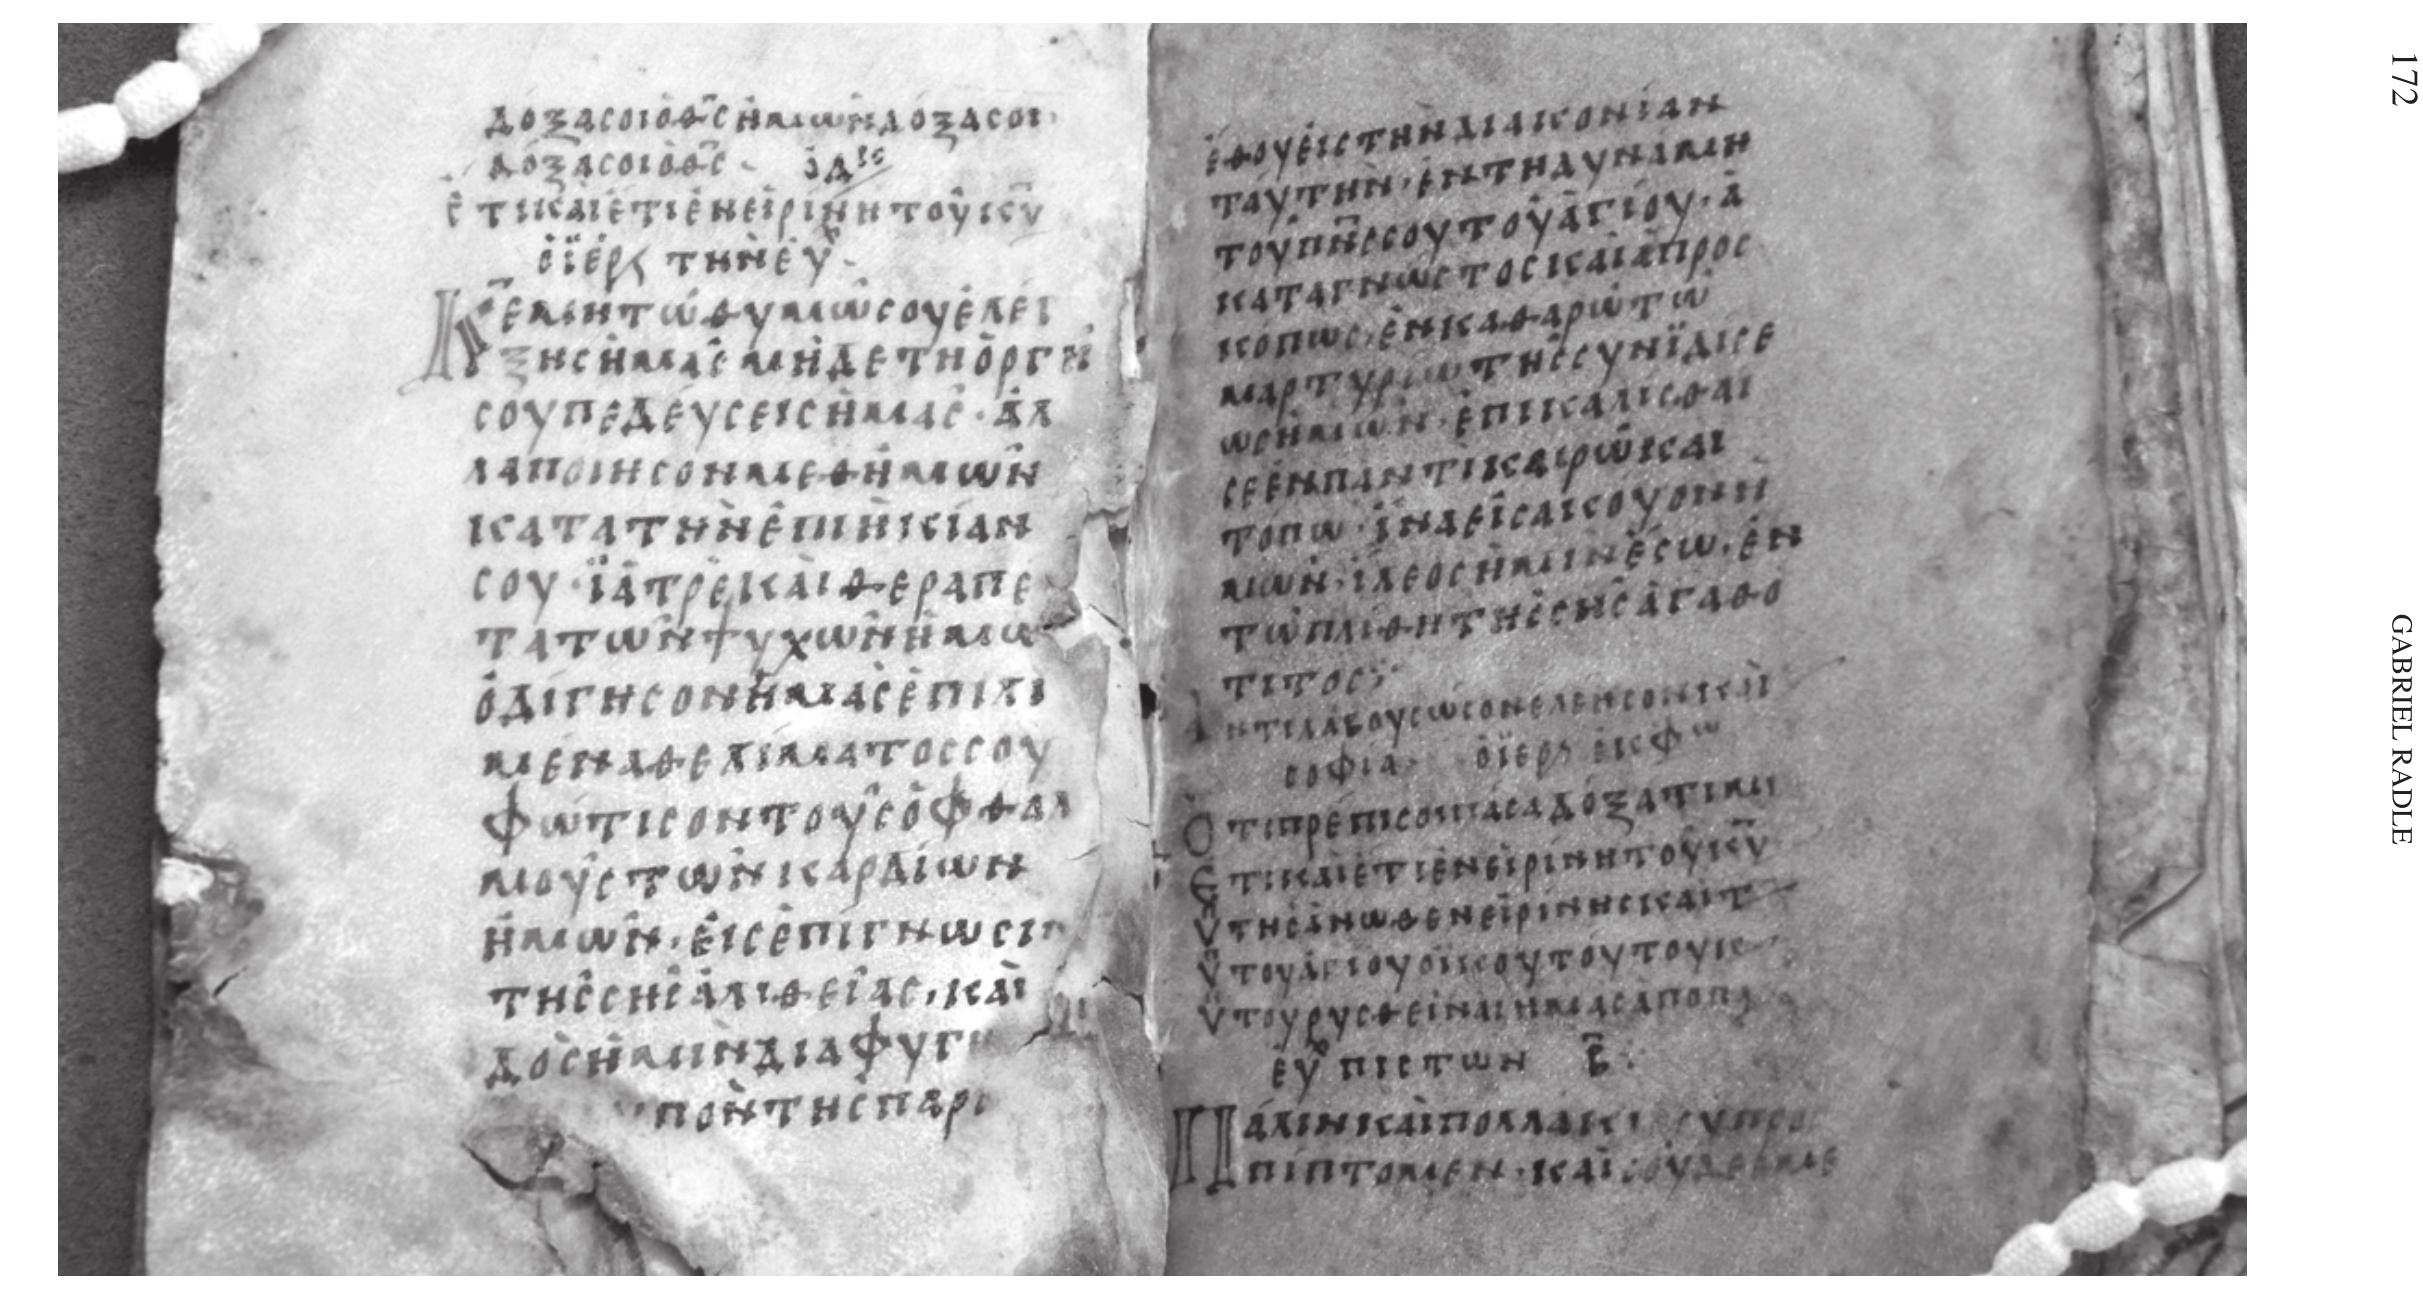 δόξα σοι ὁ θ̅ς̅ ἡμῶν δόξα σοι
δόξα σοι ὁ θ̅ς̅ ὁ δι̅ς̅
ἔτι καὶ ἔτι ἐν εἰρίνη τοῦ κ̅υ̅
ὁ ἱερ τὴν εὐ
Κ̅ε̅ μὶ τῶ θυμῶ σου ἐλέ
ξης ἡμᾶς μηδὲ τῆ ὀργῆ
σου πεδεύσεις ἡμᾶς· ἀλ
λα ποιησον μεθ ἡμῶν
κατα τὴν ἐπιηκίαν
σου· ἰατρὲ καὶ θεραπε
τα τῶν ψυχῶν ἡμῶ
ὁδίγησον ἡμᾶς ἐπι λι
μένα θελίματος σου
φώτισον τοὺς ὀφθαλ
μοὺς τῶν καρδιῶν
ἡμῶν· εἰς ἐπιγνωσιν
τῆς σῆς ἀλιθείας, καὶ
δὸς ἡμῖν διαφυγ
πὸν τῆς παρ
ἔθου εἰς τὴν διακονίαν
ταύτην· ἐν τῆ δυνάμη
τοῦ π̅ν̅ς̅ σου τοῦ ἁγίου· ἀ
καταγνώστος καὶ ἀπρος
κόπως, ἐν καθαρῶ τῶ
μαρτυρίω τῆς συνιδίσε
ως ἡμῶν· ἐπικαλίσθαι
σε ἐν παντὶ καιρῶ καὶ
τόπω· ἵνα εἰσακούον ἡ
μῶν· ἵλεος ἡμῖν ἔσω, ἐν
τῶ πλίθη τῆς σῆς ἀγαθό
τιτος·
Ἀντιλαβου σωσον ελεησον κὶ
σοφία ὁ ἱερ ἐκφω
Ὅτι πρέπι σοι πάσα δόξα τιμὶ
Ἔτι καὶ ἔτι ἐν εἰρίνη τοῦ κ̅υ̅
Ὑ τῆς ἄνωθεν εἰρίνης καὶ τ
Ὑ τοῦ ἁγίου οἴκου τούτου κ
Ὑ τοῦ ρυσθείναι ἡμᾶς ἀπο π
εὐ πιστων β̅·
Πάλιν καὶ πολλάκι σοὶ προσ
πίπτομεν· καὶ σοῦ δεόμε
172
GABRIEL RADLE